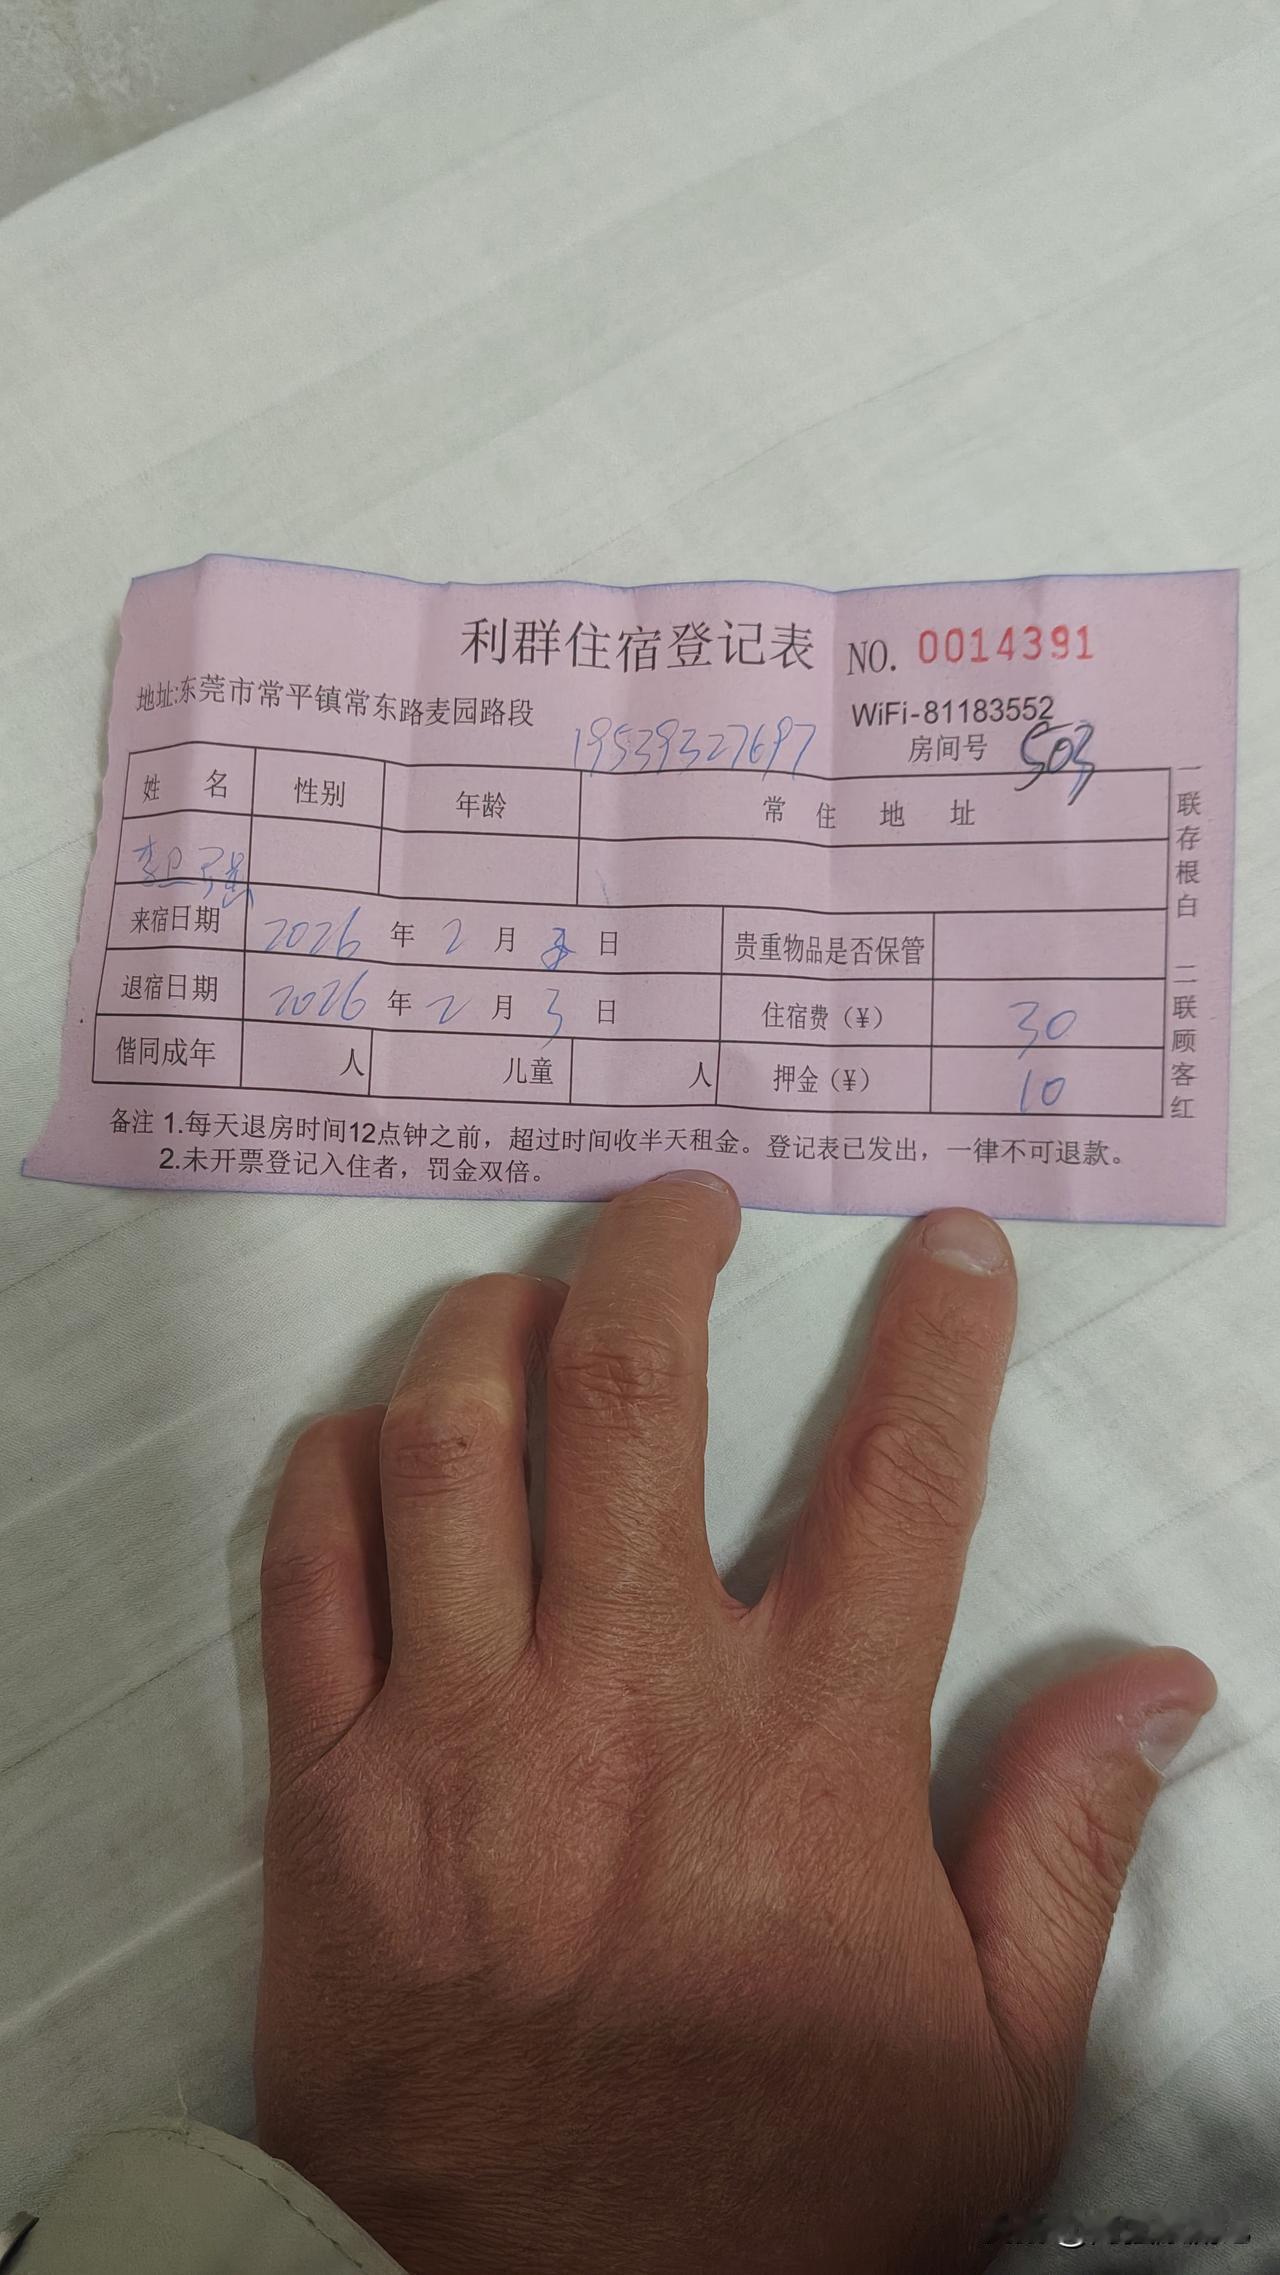 利群住宿登记表 NO. 0014391
地址:东莞市常平镇常东路麦园路段
WiFi-81183552
19539327697
房间号 503
姓 名 性别 年龄 常 住 地 址
李卫强
来宿日期 2026 年 2 月 日 贵重物品是否保管
退宿日期 2026 年 2 月 3 日 住宿费(¥) 30
偕同成年 人 儿童 人 押金(¥) 10
备注 1.每天退房时间12点钟之前，超过时间收半天租金。登记表已发出，一律不可退款。
2.未开票登记入住者，罚金双倍。
一联存根白 二联顾客红